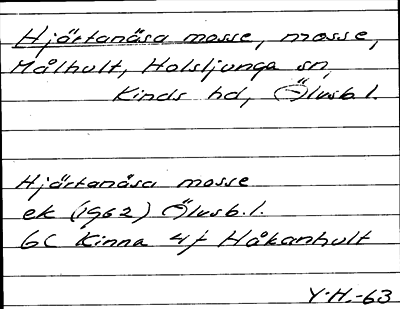 Hjärtanåsa mosse, mosse,
Målhult, Holsljunga sn,
Kinds hd, Älvsb.l.
Hjärtanåsa mosse
ek (1962) Älvsb.l.
6C Kinna 4f Håkanhult
Y.H.-63